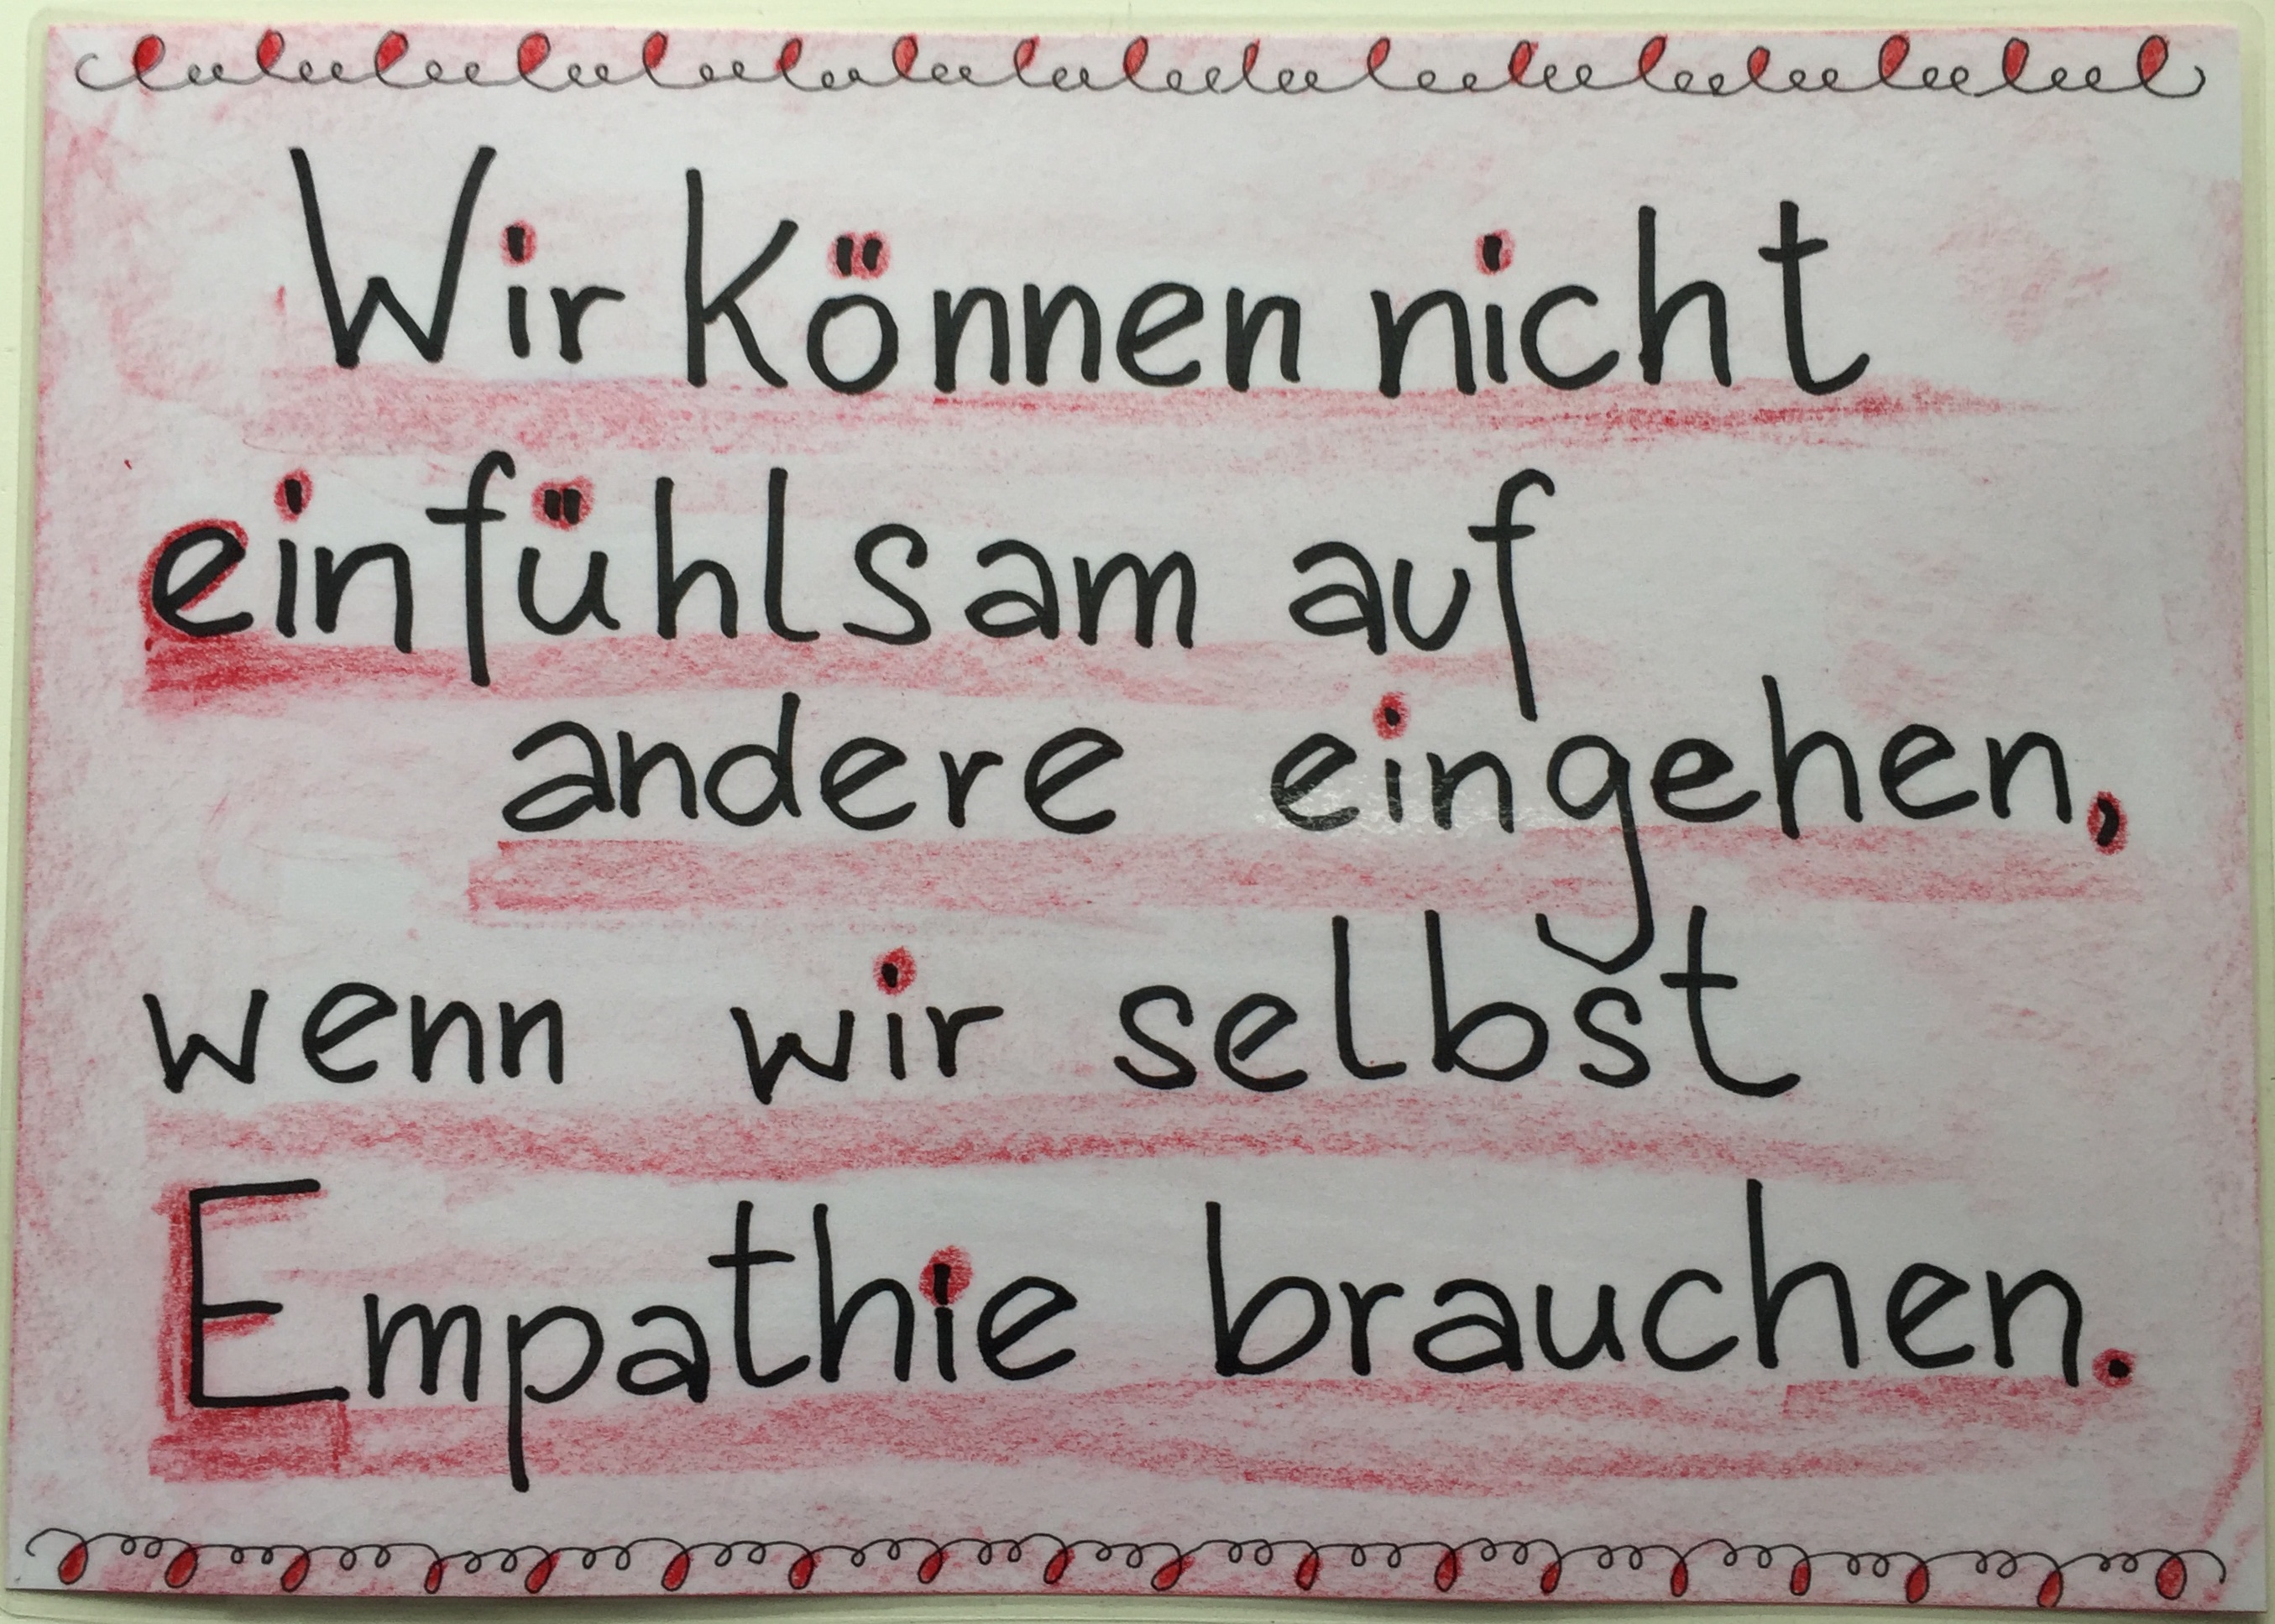 Wir können nicht
einfühlsam auf
andere eingehen,
wenn wir selbst
Empathie brauchen.